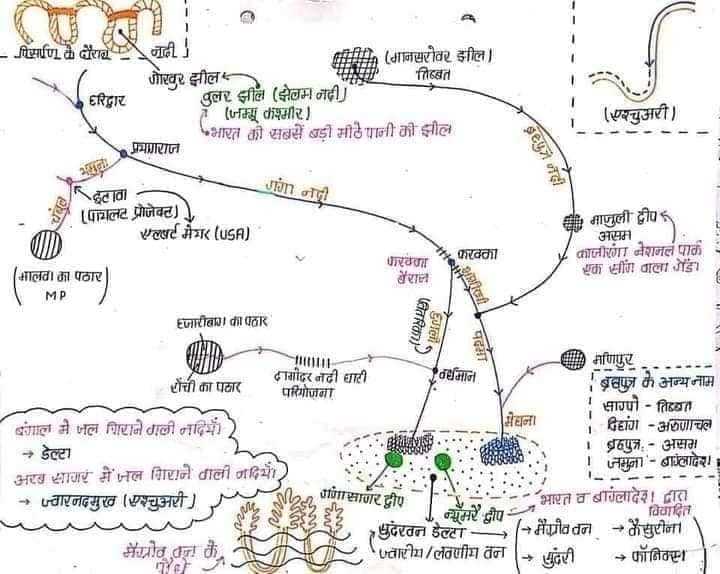 विसर्पण के दौरान नदी
गोखुर झील
वुलर झील (झेलम नदी)
(जम्मू कश्मीर)
भारत की सबसे बड़ी मीठे पानी की झील
(मानसरोवर झील)
तिब्बत
(एश्चुअरी)
हरिद्वार
प्रयागराज
यमुना
चंबल
इटावा
(पायलट प्रोजेक्ट)
एल्बर्ट मेयर (USA)
(मालवा का पठार)
MP
गंगा नदी
ब्रह्मपुत्र नदी
माजुली द्वीप
असम
काजीरंगा नेशनल पार्क
एक सींग वाला गेंडा
फरक्का
फरक्का
बैराज
हुगली
पदमा
हजारीबाग का पठार
राँची का पठार
दामोदर नदी घाटी
परियोजना
वर्धमान
मणिपुर
मेघना
ब्रह्मपुत्र के अन्य नाम
सांग्पो - तिब्बत
दिहांग - अरुणाचल
ब्रह्मपुत्र - असम
जमुना - बांग्लादेश
बंगाल में जल गिराने वाली नदियाँ
→ डेल्टा
अरब सागर में जल गिराने वाली नदियाँ
→ ज्वारनदमुख (एश्चुअरी)
मैंग्रोव वन के
पौधे
गंगा सागर द्वीप
न्यूमूरे द्वीप
भारत व बांग्लादेश द्वारा
विवादित
सुंदरवन डेल्टा
ज्वारीय/लवणीय वन
→ मैंग्रोव वन → कैसुरीना
→ सुंदरी → फॉनिक्स